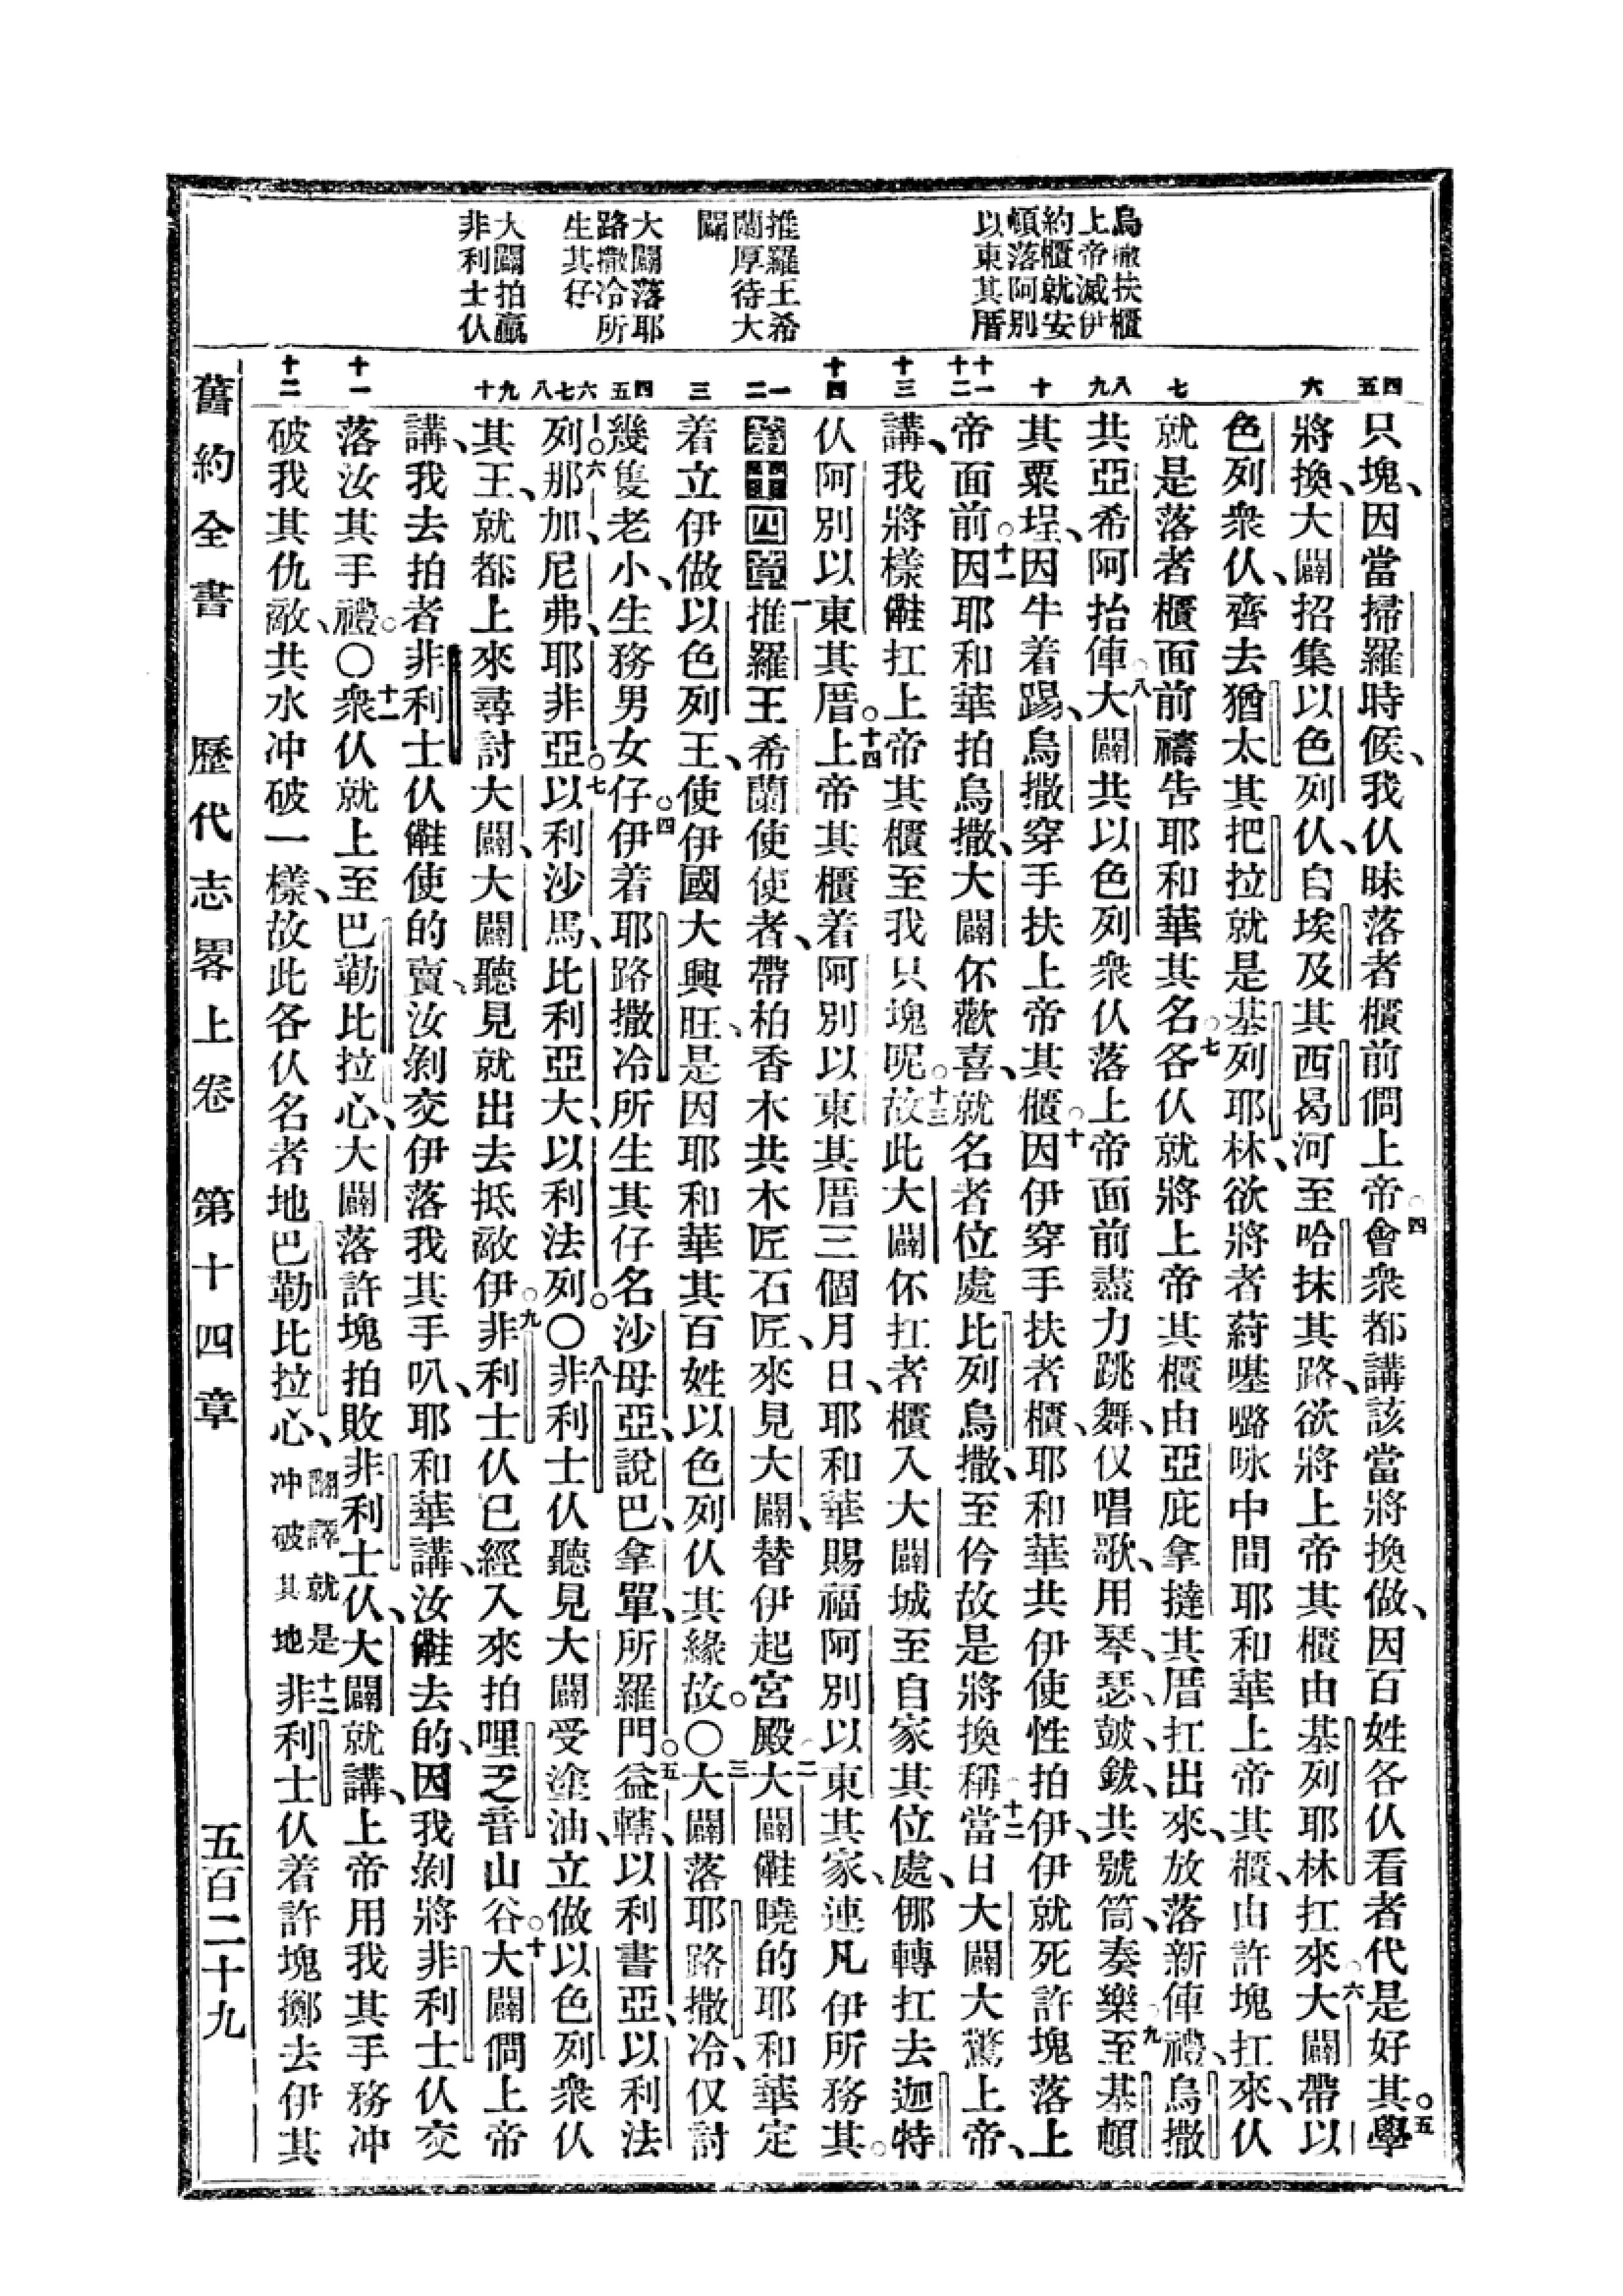 烏撒扶櫃
上帝滅伊
約櫃就安
頓落阿別
以東其厝
推羅王希
蘭厚待大
闢
大闢落耶
路撒冷所
生其仔
大闢拍贏
非利士仫
四 五 六 七 八 九 十 十一 十二 十三 十四 一 二 三 四 五 六 七 八 九 十 十一 十二
只塊、因當掃羅時候、我仫昧落者櫃前僩上帝○四會衆都講該當將換做、因百姓各仫看者代是好其。五學
將換、大闢招集以色列仫、自埃及其西曷河至哈抹其路、欲將上帝其櫃由基列耶林扛來○六大闢帶以
色列衆仫、齊去猶太其把拉就是基列耶林、欲將者蒔𡀔嚧咏中間耶和華上帝其櫃、由許塊扛來、仫
就是落者櫃面前禱告耶和華其名○七各仫就將上帝其櫃由亞庇拿撻其厝扛出來、放落新俥禮、烏撒
共亞希阿抬俥○八大闢共以色列衆仫落上帝面前盡力跳舞、仅唱歌、用琴、瑟、鼓、鈸、共號筒、奏樂○九至基頓
其粟埕、因牛着踢、烏撒穿手扶上帝其櫃○十因伊穿手扶者櫃、耶和華共伊使性拍伊、伊就死許塊落上
帝面前。十一因耶和華拍烏撒、大闢伓歡喜、就名者位處比列烏撒、至仱故是將換稱○十二當日大闢大驚上帝、
講、我將樣𠍽扛上帝其櫃至我只塊呢○十三故此大闢伓扛者櫃入大闢城至自家其位處、倻轉扛去迦特
仫阿別以東其厝。十四上帝其櫃着阿別以東其厝三個月日、耶和華賜福阿別以東其家、連凡伊所務其○
第十四章 一推羅王希蘭使使者、帶柏香木共木匠石匠、來見大闢、替伊起宮殿○二大闢𠍽曉的耶和華定
着立伊做以色列王、使伊國大興旺、是因耶和華其百姓以色列仫其緣故。○三大闢落耶路撒冷、仅討
幾隻老小、生務男女仔。四伊着耶路撒冷所生其仔名沙母亞、說巴、拿單、所羅門。五益轄、以利書亞、以利法
列。六那加、尼弗、耶非亞。七以利沙馬、比利亞大、以利法列。○八非利士仫聽見大闢受塗油、立做以色列衆仫
其王、就都上來尋討大闢、大闢聽見就出去抵敵伊○九非利士仫已經入來拍哩乏音山谷。十大闢僩上帝
講、我去拍者非利士仫𠍽使的賣、汝剃交伊落我其手叭、耶和華講、汝𠍽去的、因我剃將非利士仫交
落汝其手禮○○十一衆仫就上至巴勒比拉心、大闢落許塊拍敗非利士仫、大闢就講、上帝用我其手務冲
破我其仇敵、共水冲破一樣、故此各仫名者地巴勒比拉心、翻譯就是冲破其地 十二非利士仫着許塊擲去伊其
舊約全書 歷代志畧上卷 第十四章 五百二十九